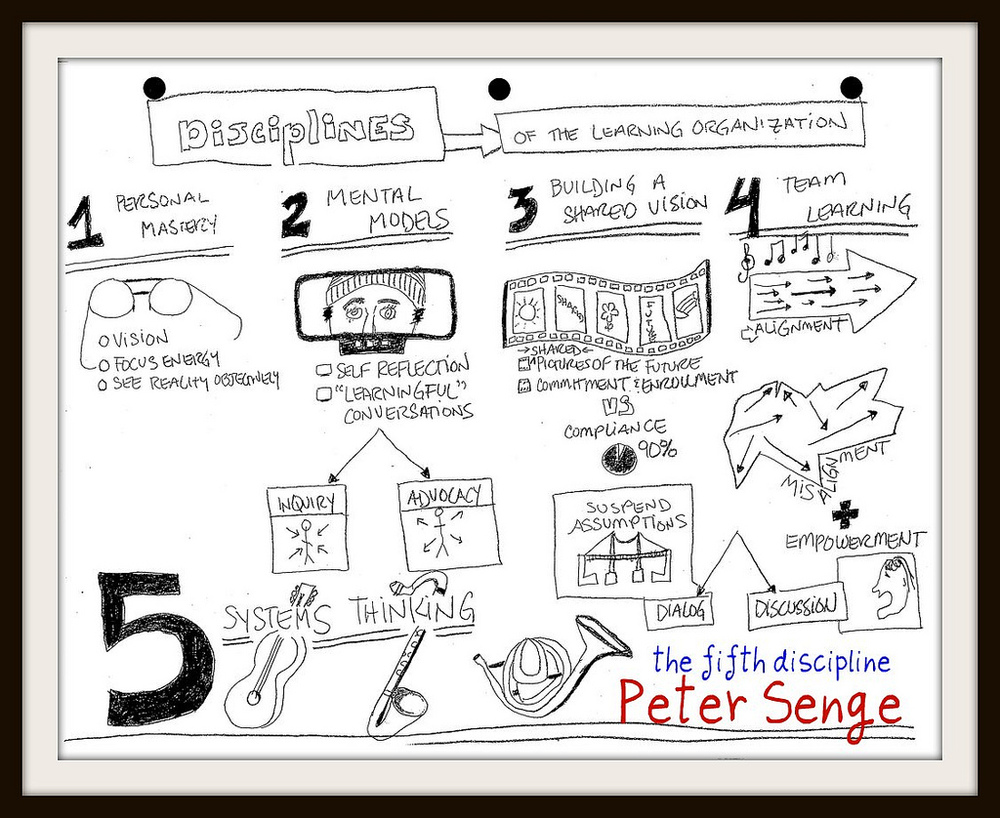 DISCIPLINES
OF THE LEARNING ORGANIZATION
1 PERSONAL
MASTERY
VISION
FOCUS ENERGY
SEE REALITY OBJECTIVELY
2 MENTAL
MODELS
SELF REFLECTION
"LEARNINGFUL"
CONVERSATIONS
INQUIRY
ADVOCACY
3 BUILDING A
SHARED VISION
SHARED
FUTURE
SHARED
PICTURES OF THE FUTURE
COMMITMENT & ENROLLMENT
VS
COMPLIANCE
90%
SUSPEND
ASSUMPTIONS
4 TEAM
LEARNING
ALIGNMENT
MISALIGNMENT
+
EMPOWERMENT
DIALOG
DISCUSSION
5 SYSTEMS THINKING
the fifth discipline
Peter Senge